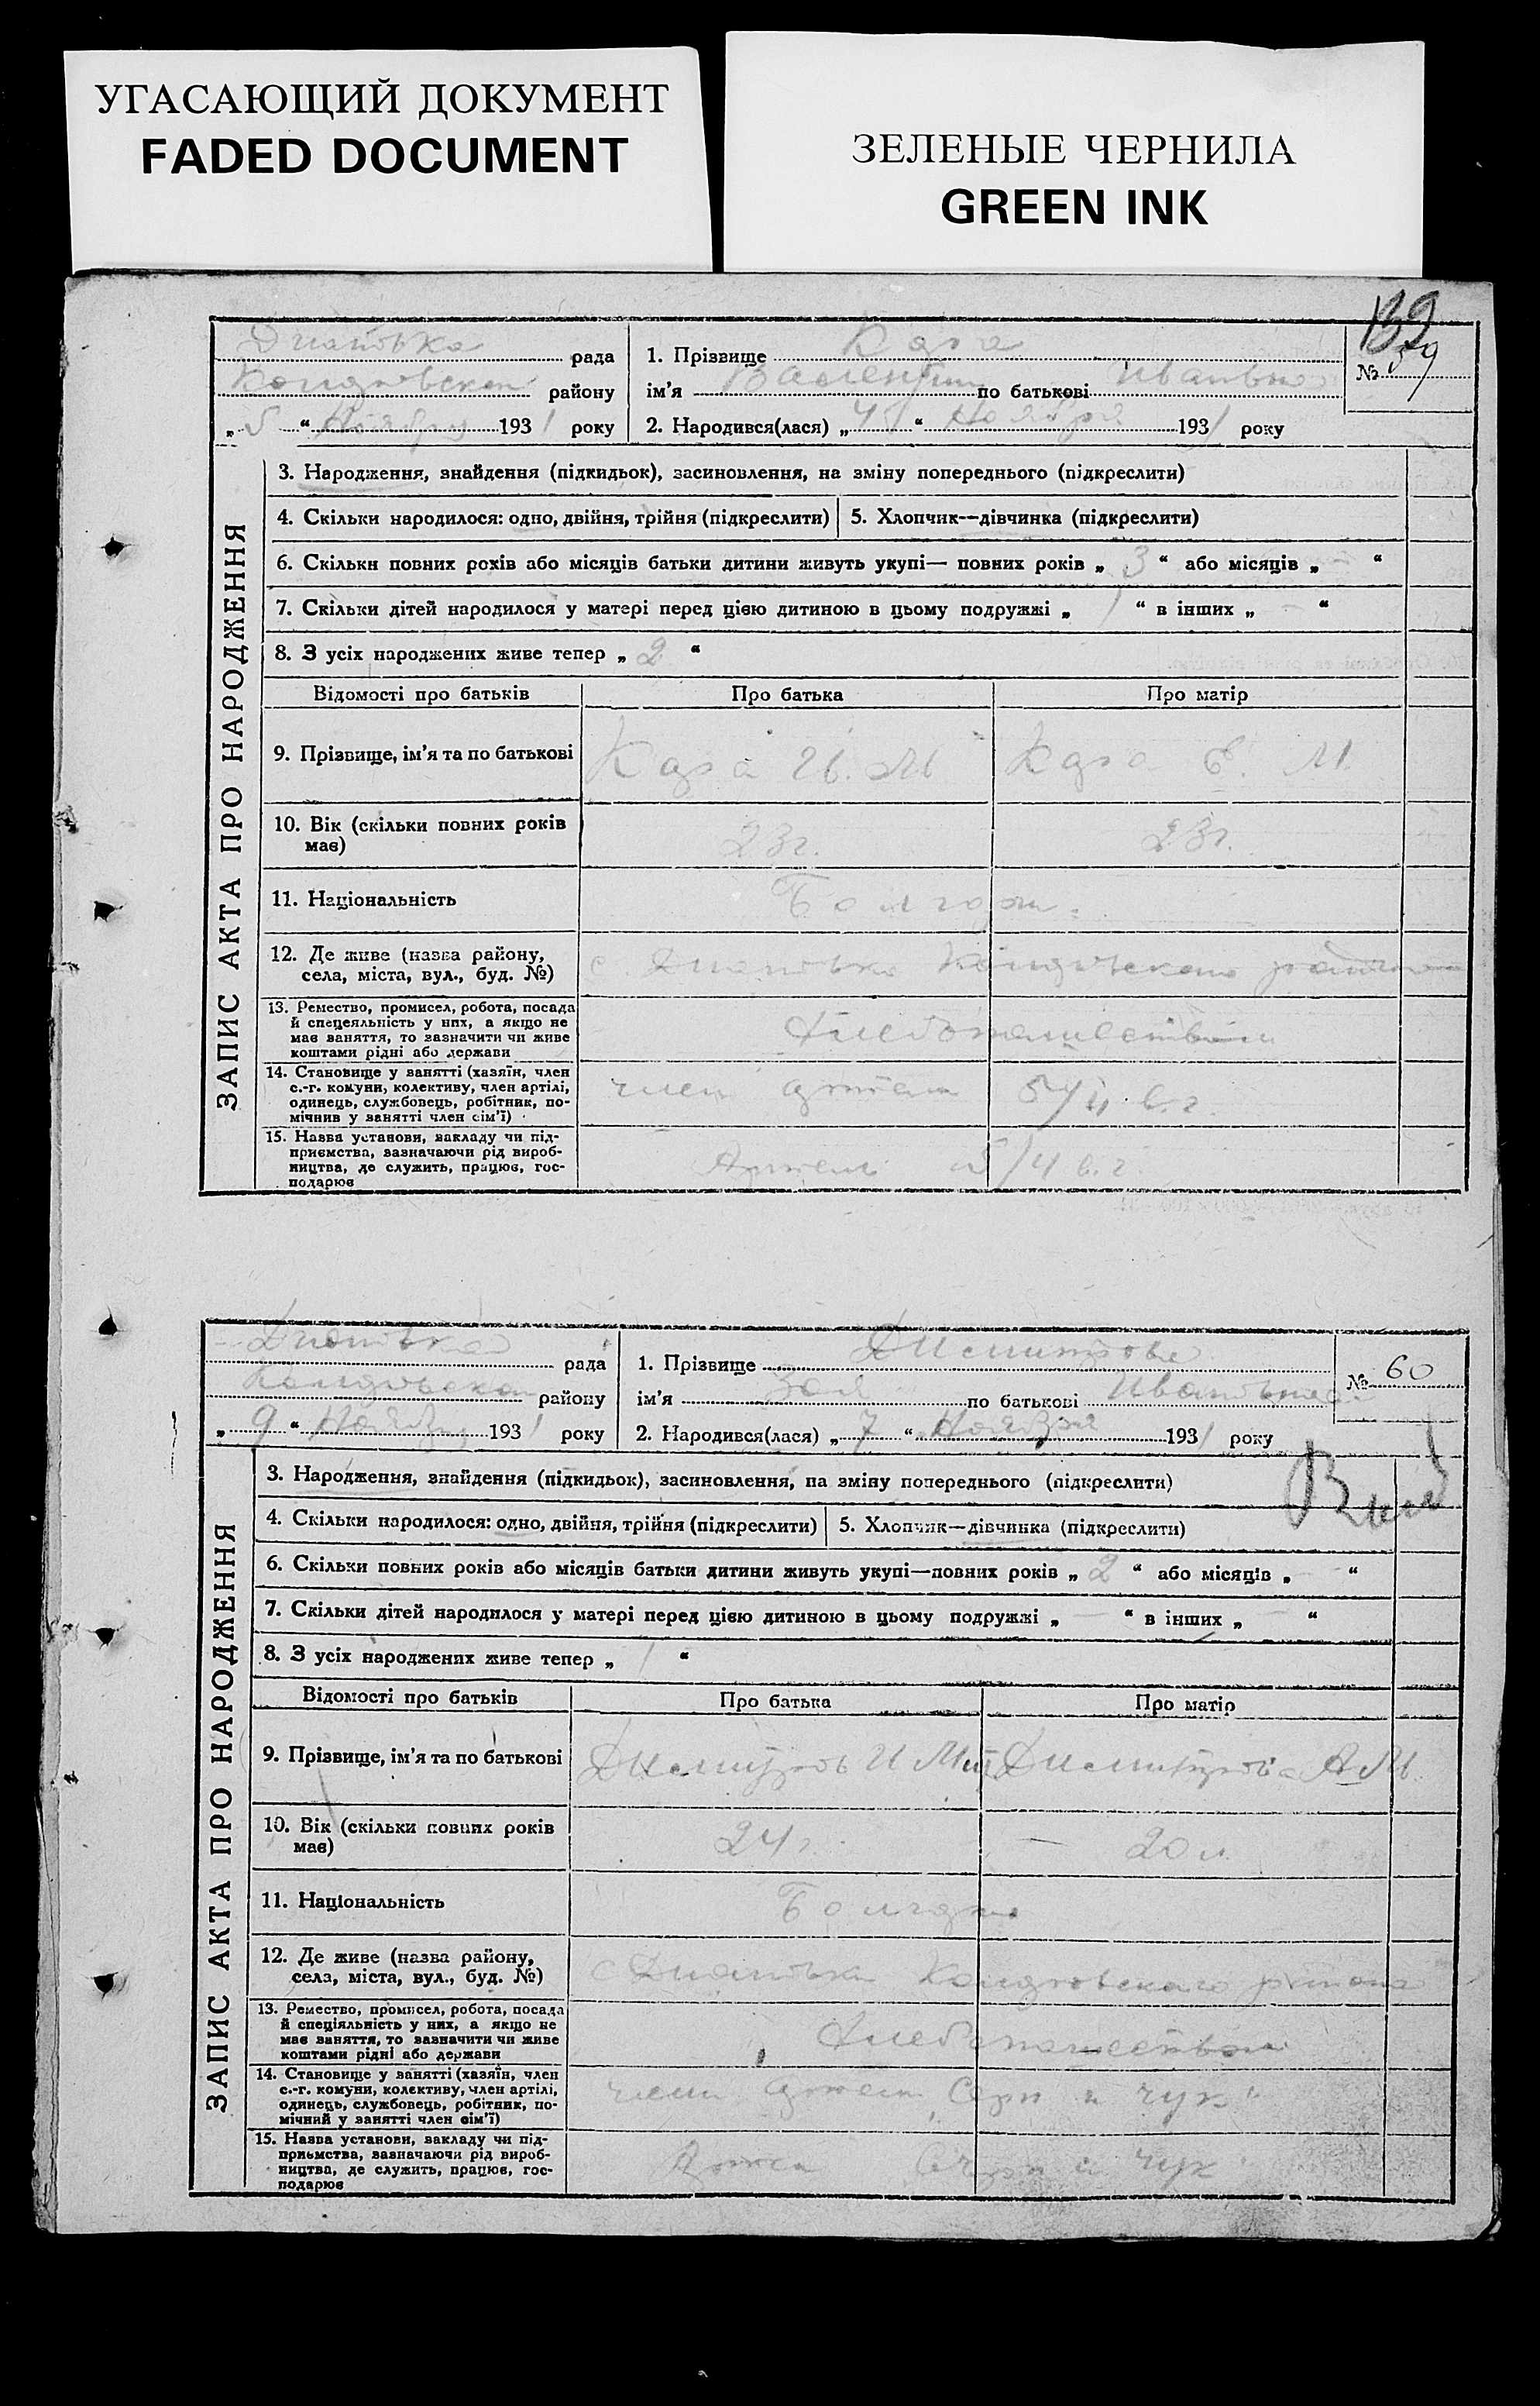 УГАСАЮЩИЙ ДОКУМЕНТ
FADED DOCUMENT
ЗЕЛЕНЫЕ ЧЕРНИЛА
GREEN INK
139
рада
району
„ 5 “ Ноября 1931 року
1. Прізвище Кара
ім'я по батькові
№ 59
2. Народився(лася) „ “ Ноября 1931 року
ЗАПИС АКТА ПРО НАРОДЖЕННЯ
3. Народження, знайдення (підкидьок), засиновлення, на зміну попереднього (підкреслити)
4. Скільки народилося: одно, двійня, трійня (підкреслити) 5. Хлопчик—дівчинка (підкреслити)
6. Скільки повних років або місяців батьки дитини живуть укупі— повних років „ 3 “ або місяців „ - “
7. Скільки дітей народилося у матері перед цією дитиною в цьому подружжі „ 1 “ в інших „ - “
8. З усіх народжених живе тепер „ 2 “
Відомості про батьків Про батька Про матір
9. Прізвище, ім'я та по батькові Кара Ив. М Кара Е. М.
10. Вік (скільки повних років
має) 23 г. 23 г.
11. Національність Болгоры
12. Де живе (назва району,
села, міста, вул., буд. №)
13. Ремество, промисел, робота, посада
й спецеяльність у них, а якщо не
має заняття, то зазначити чи живе
коштами рідні або держави
Хлебопашеством
14. Становище у занятті (хазяїн, член
с.-г. комуни, колективу, член артілі,
одинець, службовець, робітник, по-
мічник у занятті член сім'ї)
член артели 5/4 в. г.
15. Назва установи, закладу чи під-
приємства, зазначаючи рід вироб-
ництва, де служить, працює, гос-
подарює
Артель 5/4 в. г
рада
району
„ 9 “ Ноября 1931 року
1. Прізвище Димитрова
ім'я Зоя по батькові Ивановна
№ 60
2. Народився(лася) „ 7 “ Ноября 1931 року
ЗАПИС АКТА ПРО НАРОДЖЕННЯ
3. Народження, знайдення (підкидьок), засиновлення, на зміну попереднього (підкреслити)
4. Скільки народилося: одно, двійня, трійня (підкреслити) 5. Хлопчик—дівчинка (підкреслити)
6. Скільки повних років або місяців батьки дитини живуть укупі—повних років „ 2 “ або місяців „ - “
7. Скільки дітей народилося у матері перед цією дитиною в цьому подружжі „ - “ в інших „ - “
8. З усіх народжених живе тепер „ 1 “
Відомості про батьків Про батька Про матір
9. Прізвище, ім'я та по батькові Димитров И Мит Димитрова А М
10. Вік (скільки повних років
має) 24 г. 20 л.
11. Національність Болгоры
12. Де живе (назва району,
села, міста, вул., буд. №)
13. Ремество, промисел, робота, посада
й спеціяльність у них, а якщо не
має заняття, то зазначити чи живе
коштами рідні або держави
Хлебопашеством
14. Становище у занятті (хазяїн, член
с.-г. комуни, колективу, член артілі,
одинець, службовець, робітник, по-
мічний у занятті член сім'ї)
член артели
15. Назва установи, закладу чи під-
приємства, зазначаючи рід вироб-
ництва, де служить, працює, гос-
подарює